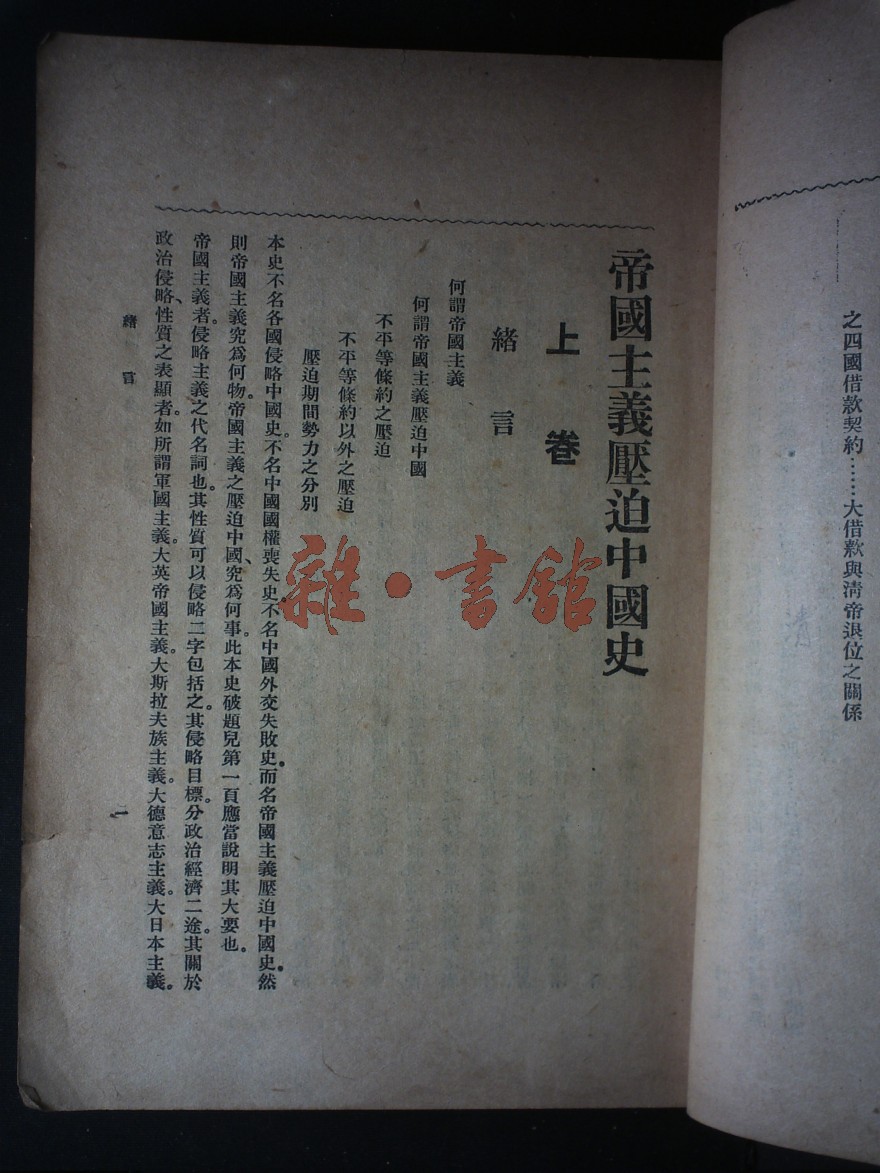 之四國借款契約……大借款與淸帝退位之關係
帝國主義壓迫中國史
上卷
緒言
何謂帝國主義
何謂帝國主義壓迫中國
不平等條約之壓迫
不平等條約以外之壓迫
壓迫期間勢力之分別
本史不名各國侵略中國史。不名中國國權喪失史。不名中國外交失敗史。而名帝國主義壓迫中國史。然
則帝國主義究爲何物。帝國主義之壓迫中國、究爲何事。此本史破題兒第一頁應當說明其大要也。
帝國主義者。侵略主義之代名詞也。其性質可以侵略二字包括之。其侵略目標。分政治經濟二途。其關於
政治侵略、性質之表顯者。如所謂軍國主義。大英帝國主義。大斯拉夫族主義。大德意志主義。大日本主義。
緒言
一
雜·書館